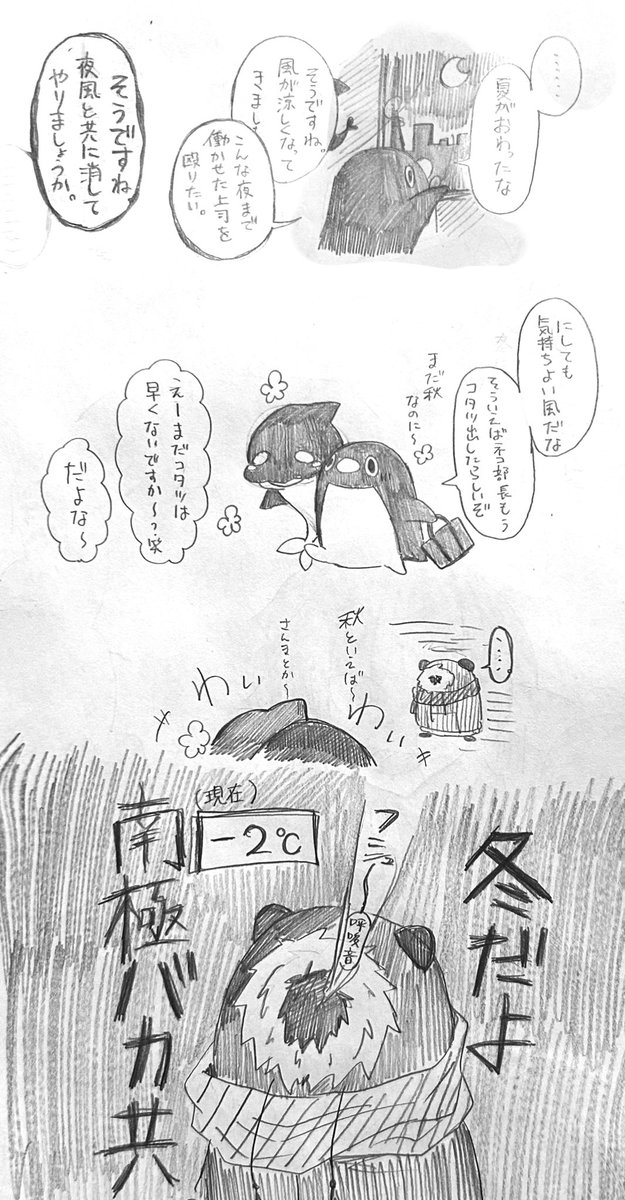 ……
夏がおわったな
そうですね。
風が涼しくなって
きまし
こんな夜まで
働かせた上司を
殴りたい。
そうですね
夜風と共に消して
やりましょうか。
にしても
気持ちよい風だな
そういえばネコ部長もう
コタツ出したらしいぞ
まだ秋
なのに〜
えーまだコタツは
早くないですか〜?笑
だよな〜
……
秋といえば〜
さんまとか〜
わぃ
わぃ
冬だよ
フシュ〜
呼吸音
(現在)
-2℃
南極バカ共